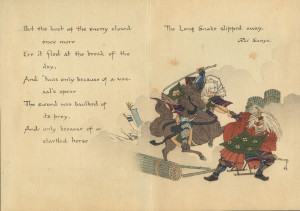 But the host of the enemy closed
once more
Ere it fled at the break of the
day,
And 'twas only because of a vas-
sal's spear
The sword was baulked of
its prey,
And only because of a
startled horse
The Long Snake slipped away.
Rai Sanyo.